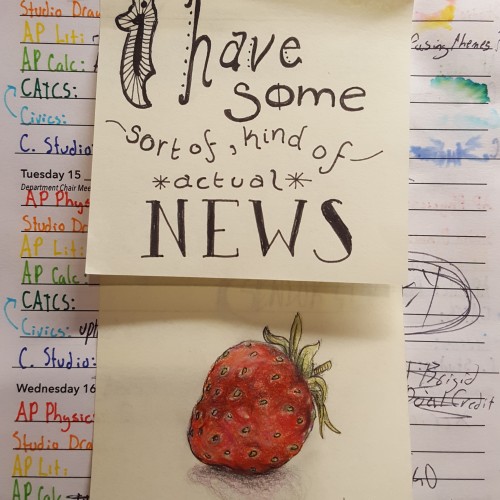 I have
some
~sort of, kind of~
*actual*
NEWS
Studio Dra
AP Lit:
AP Calc:
CATCS:
Civics:
C. Studio
Tuesday 15
Department Chair Mee
AP Phys
Studio Dr
AP Lit:
AP Calc:
CATCS:
Civics: upl
C. Studio:
Wednesday 16
AP Physic
Studio Dra
AP Lit:
AP Calc
Brigid
Dual Credit